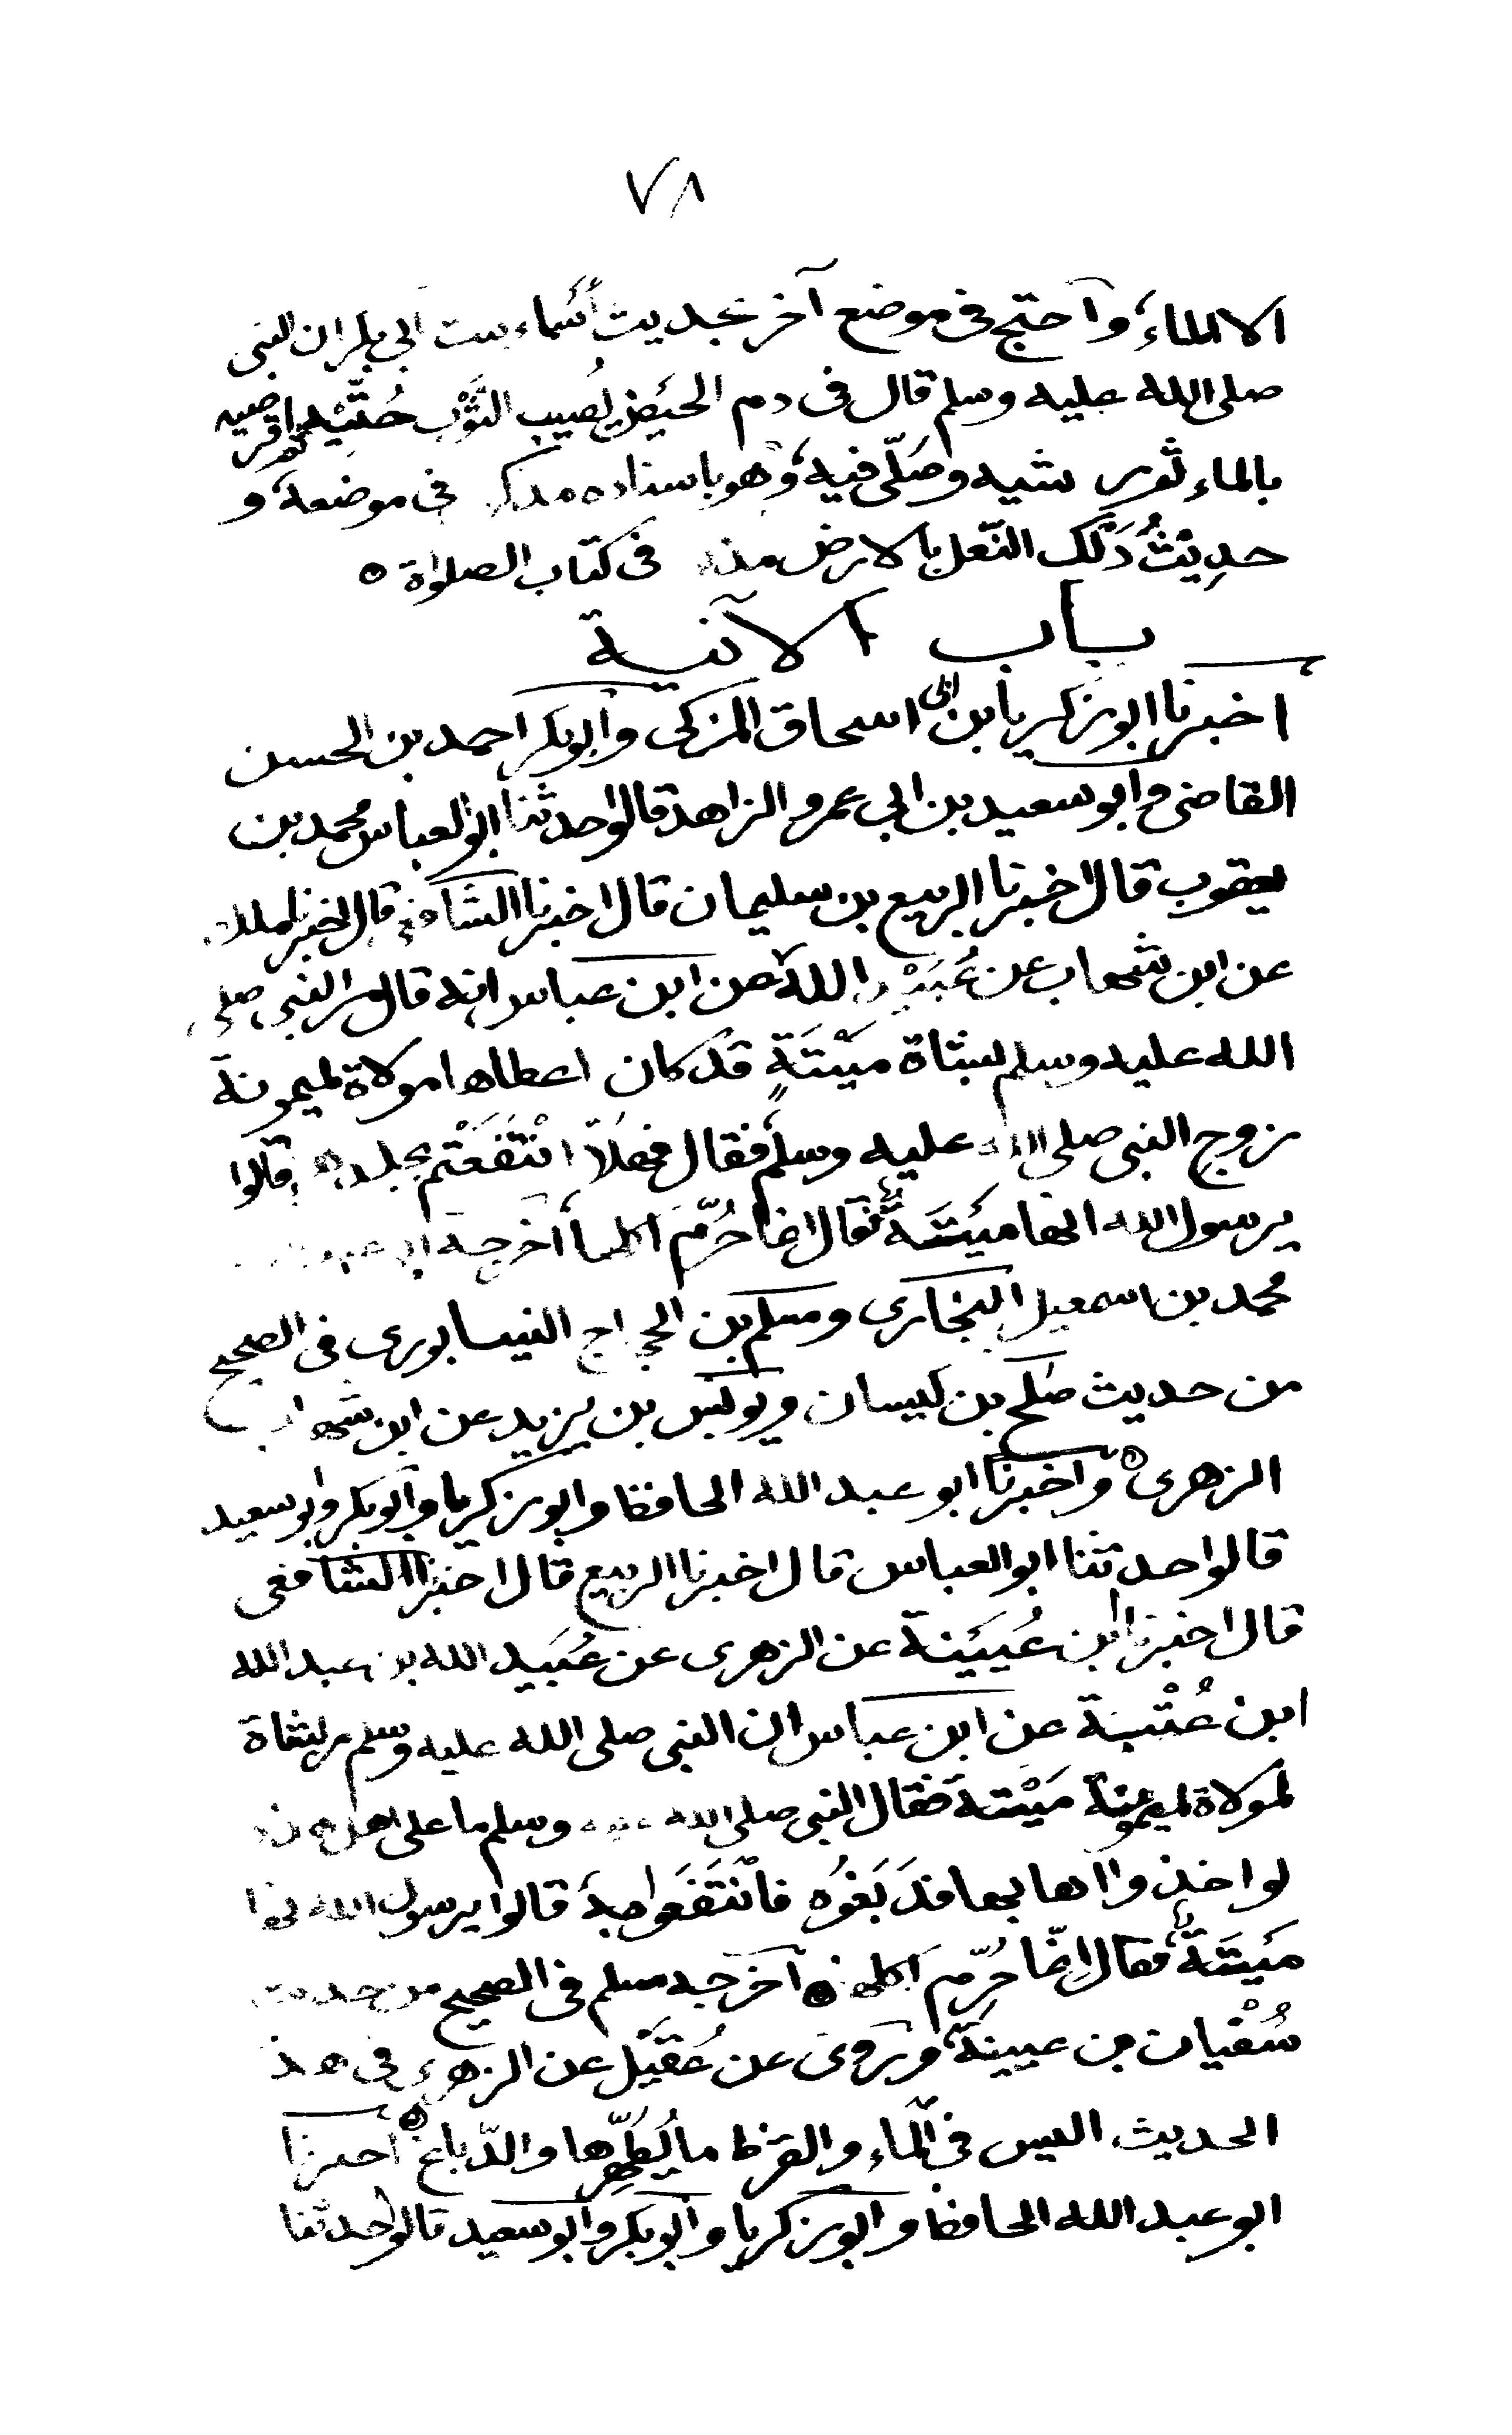 ٧٨
الا الماء، واحتج فى موضع آخر بحديث أسماء بنت ابى بكر ان النبى
صلى الله عليه وسلم قال فى دم الحيض يُصيب الثَّوْب حُتِّيْه ثم اقرصيه
بالماء ثم رشيه وصَلّى فيه، وهو باسناده مذكور فى موضعه، و
حدِيْثُ دَلْك النّعل بالارض منه فى كتاب الصلواة ٥
بــاب الآنيــة
اخبرنا ابو زكريا بن ابى اسحاق المزكى وابو بكر احمد بن الحسن
القاضى وابو سعيد بن ابى عمرو الزاهد قالوا حدثنا ابو العباس محمد بن
يعقوب قال اخبرنا الربيع بن سليمان قال اخبرنا الشافعى قال اخبرنا ملك
عن ابن شهاب عن عُبَيْد الله عن ابن عباس انه قال مر النبى صلى
الله عليه وسلم بشاة مَيْتَةٍ قد كان اعطاها مولاة لميمونة
زوج النبى صلى الله عليه وسلم، فقال فهَلاّ انْتَفَعْتم بجلدها قالوا
يرسول الله انها مَيْتَة، فقال انما حُرّم اكلها، أخرجه ابو عبد الله
محمد بن اسمعيل البخارى ومسلم بن الحجاج النيسابورى فى الصحيح
من حديث صلح بن كيسان ويونس بن يزيد عن ابن شهاب
الزهرى ٥ واخبرنا ابو عبد الله الحافظ وابو زكريا وابو بكر وابو سعيد
قالوا حدثنا ابو العباس قال اخبرنا الربيع قال اخبرنا الشافعى
قال اخبرنا ابن عُيَيْنة عن الزهرى عن عُبَيد الله بن عبد الله
ابن عُتْبة عن ابن عباس ان النبى صلى الله عليه وسلم مر بشاة
لمولاة لميمونة مَيْتة فقال النبى صلى الله عليه وسلم ما على اهل هذه
لو اخذوا اهابها فدَبَغُوه فانْتَفَعوا به، قالوا يرسول الله انها
مَيْتَة، فقال اِنّما حُرّم اكلها ٥ اخرجه مسلم فى الصحيح من حديث
سُفْيان بن عيينة، ورَوى عن عُقَيْل عن الزهرى فى هذا
الحديث اليس فى الماء والقرظ ما يُطَهِّرها والدّباغ ٥ اخبرنا
ابو عبد الله الحافظ وابو زكريا وابو بكر وابو سعيد قالوا حدثنا